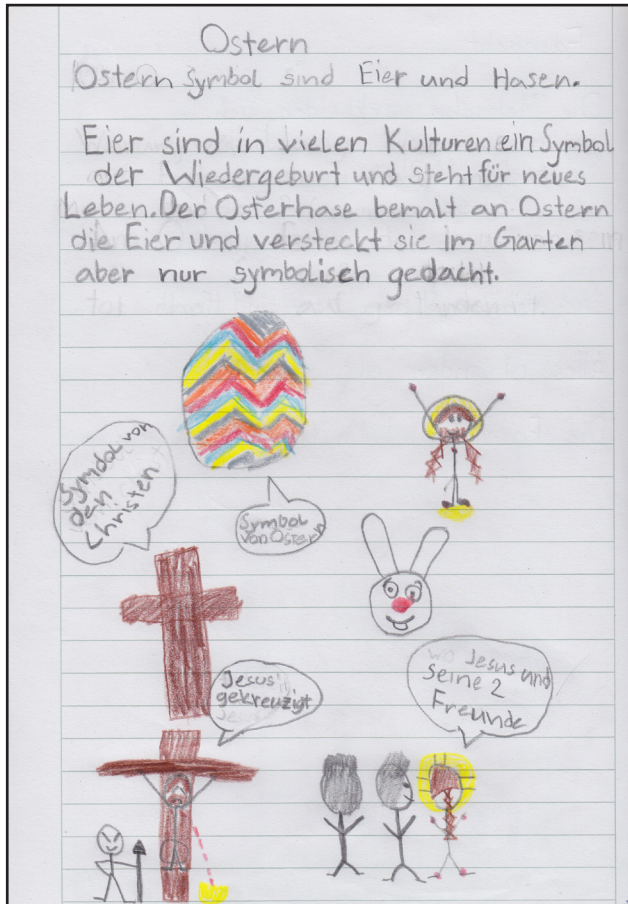 Ostern
Ostern Symbol sind Eier und Hasen.
Eier sind in vielen Kulturen ein Symbol
der Wiedergeburt und steht für neues
Leben. Der Osterhase bemalt an Ostern
die Eier und versteckt sie im Garten
aber nur symbolisch gedacht.
Symbol von
den
Christen
Symbol
von Ostern
Jesus
gekreuzigt
Jesus und
seine 2
Freunde